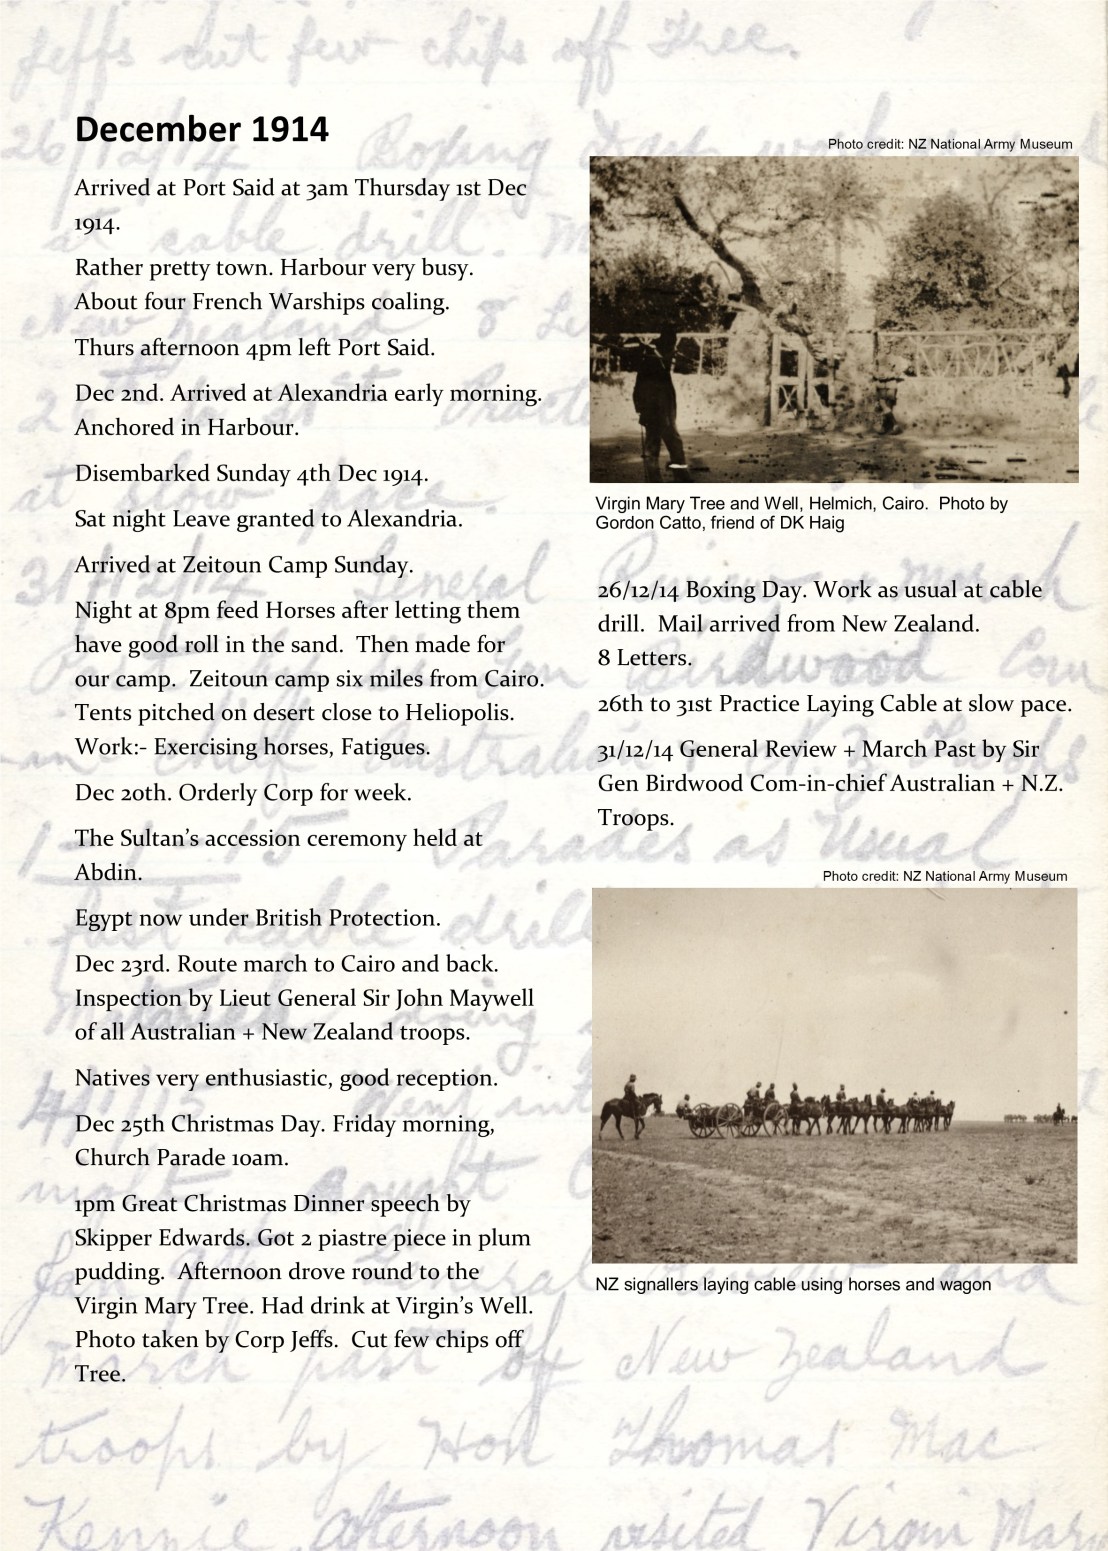 Jeffs cut few chips off Tree.
December 1914
Arrived at Port Said at 3am Thursday 1st Dec
1914.
Rather pretty town. Harbour very busy.
About four French Warships coaling.
Thurs afternoon 4pm left Port Said.
Dec 2nd. Arrived at Alexandria early morning.
Anchored in Harbour.
Disembarked Sunday 4th Dec 1914.
Sat night Leave granted to Alexandria.
Arrived at Zeitoun Camp Sunday.
Night at 8pm feed Horses after letting them
have good roll in the sand.  Then made for
our camp.  Zeitoun camp six miles from Cairo.
Tents pitched on desert close to Heliopolis.
Work:- Exercising horses, Fatigues.
Dec 20th. Orderly Corp for week.
The Sultan’s accession ceremony held at
Abdin.
Egypt now under British Protection.
Dec 23rd. Route march to Cairo and back.
Inspection by Lieut General Sir John Maywell
of all Australian + New Zealand troops.
Natives very enthusiastic, good reception.
Dec 25th Christmas Day. Friday morning,
Church Parade 10am.
1pm Great Christmas Dinner speech by
Skipper Edwards. Got 2 piastre piece in plum
pudding.  Afternoon drove round to the
Virgin Mary Tree. Had drink at Virgin’s Well.
Photo taken by Corp Jeffs.  Cut few chips off
Tree.
Photo credit: NZ National Army Museum
Virgin Mary Tree and Well, Helmich, Cairo.  Photo by
Gordon Catto, friend of DK Haig
26/12/14 Boxing Day. Work as usual at cable
drill.  Mail arrived from New Zealand.
8 Letters.
26th to 31st Practice Laying Cable at slow pace.
31/12/14 General Review + March Past by Sir
Gen Birdwood Com-in-chief Australian + N.Z.
Troops.
Photo credit: NZ National Army Museum
NZ signallers laying cable using horses and wagon
march past of New Zealand
troops by Hon Thomas Mac
Kennie afternoon visited Virgin Mary